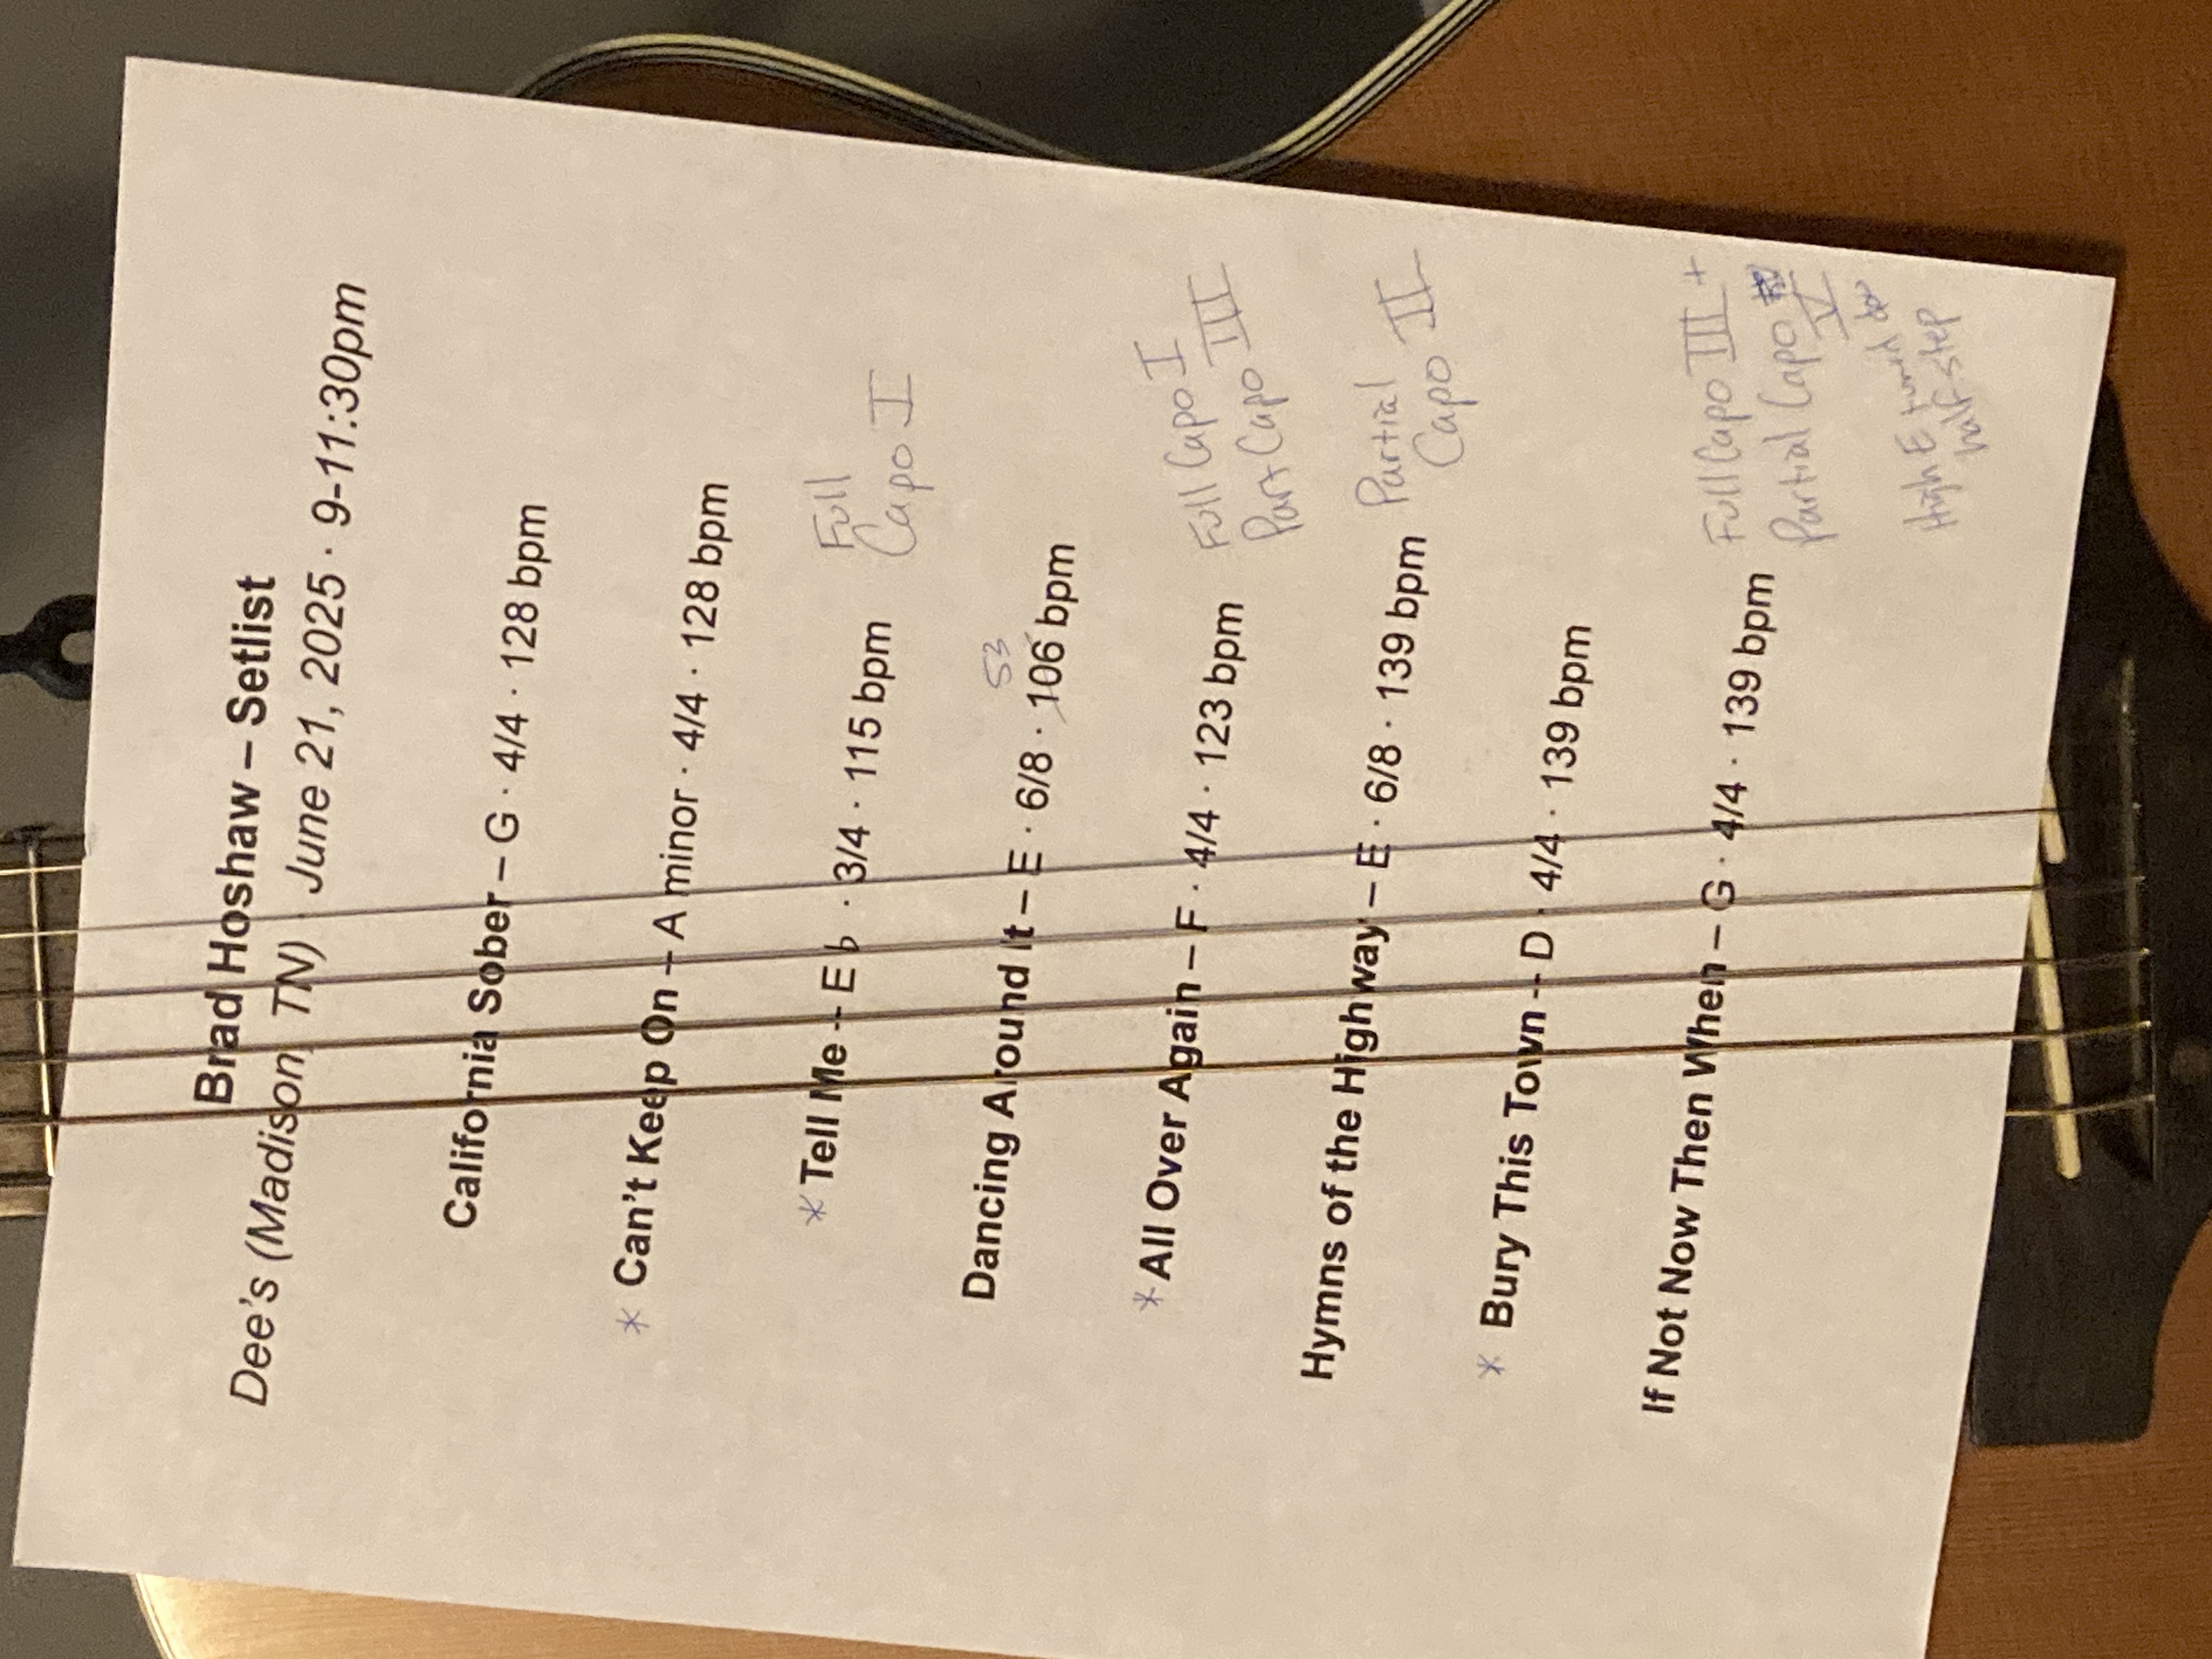 Brad Hoshaw – Setlist
Dee's (Madison, TN) · June 21, 2025 · 9-11:30pm
California Sober – G · 4/4 · 128 bpm
* Can't Keep On – A minor · 4/4 · 128 bpm
* Tell Me – E♭ · 3/4 · 115 bpm
Full
Capo I
53
Dancing Around It – E · 6/8 · 106 bpm
* All Over Again – F · 4/4 · 123 bpm
Full Capo I
Part Capo III
Hymns of the Highway – E · 6/8 · 139 bpm
Partial
Capo II
* Bury This Town – D · 4/4 · 139 bpm
If Not Now Then When – G · 4/4 · 139 bpm
Full Capo III +
Partial Capo V
High E tuned
half step